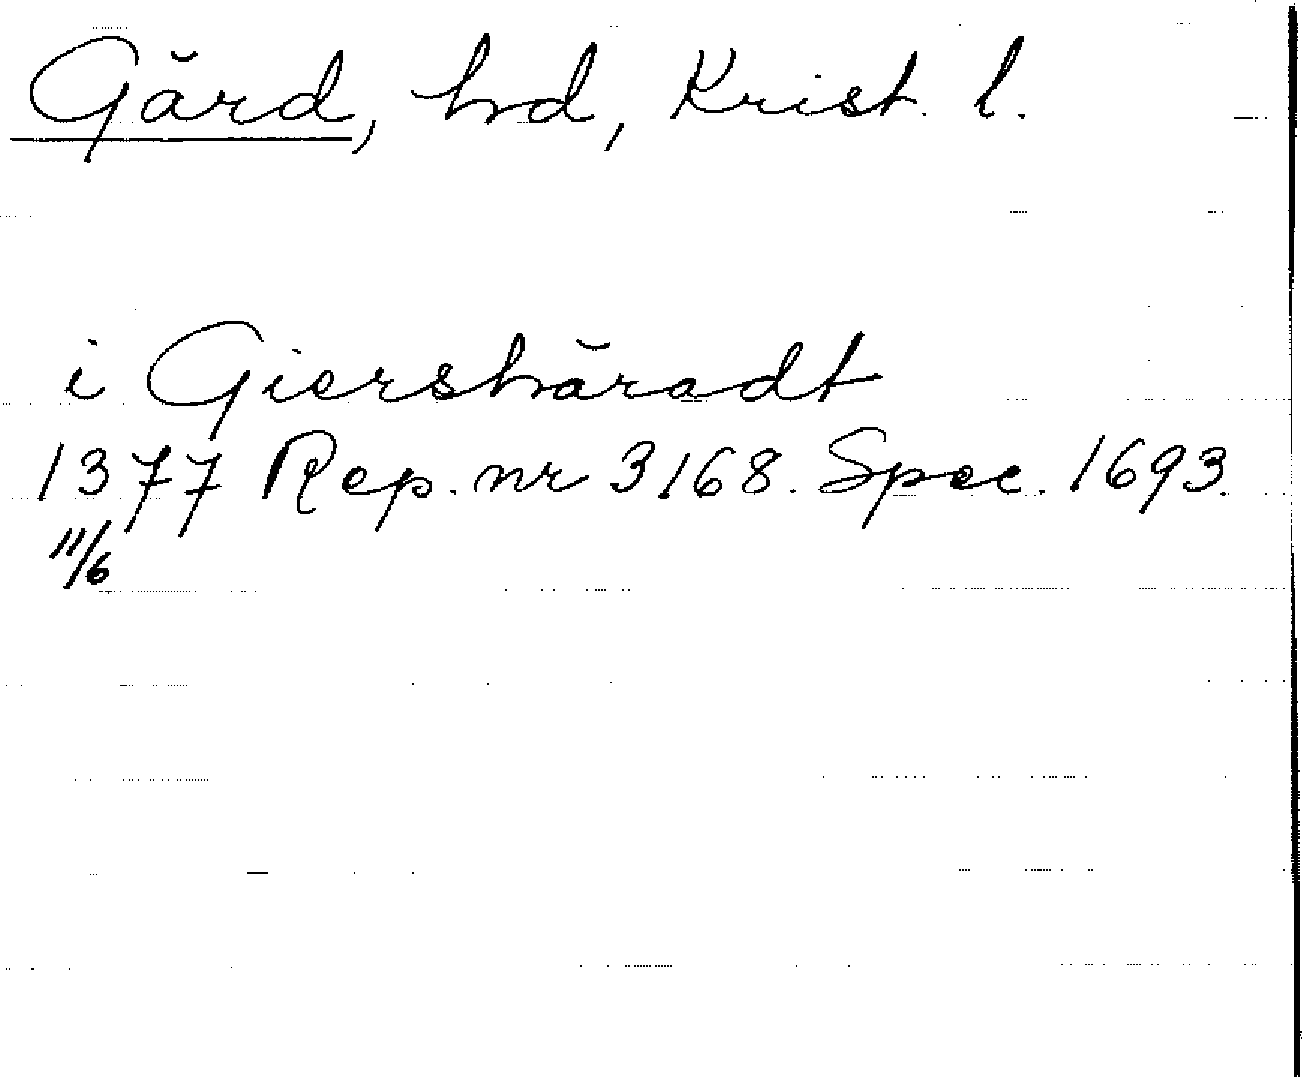 Gärd, hd, Krist. l.
i Giershäradt
1377 Rep. nr 3168. Spec. 1693.
11/6